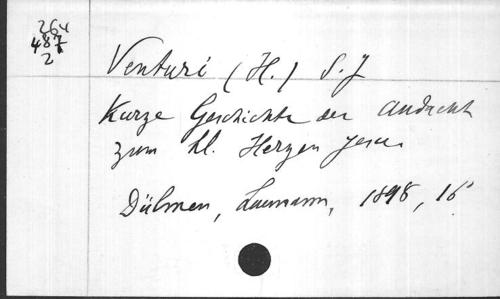 264
487
2
Venturi (H.) S. J
Kurze Geschichte der Andacht
zum hl. Herzen Jesu
Dülmen, Laumann, 1898, 16°